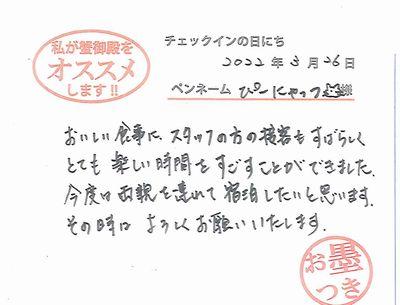 私が蟹御殿を
オススメ
します!!
チェックインの日にち
2022年3月26日
ペンネーム ぴーにゃっつ
おいしい食事に、スタッフの方の接客もすばらしく
とても楽しい時間をすごすことができました。
今度は両親を連れて宿泊したいと思います。
その時は よろしくお願いいたします。
お墨
つき